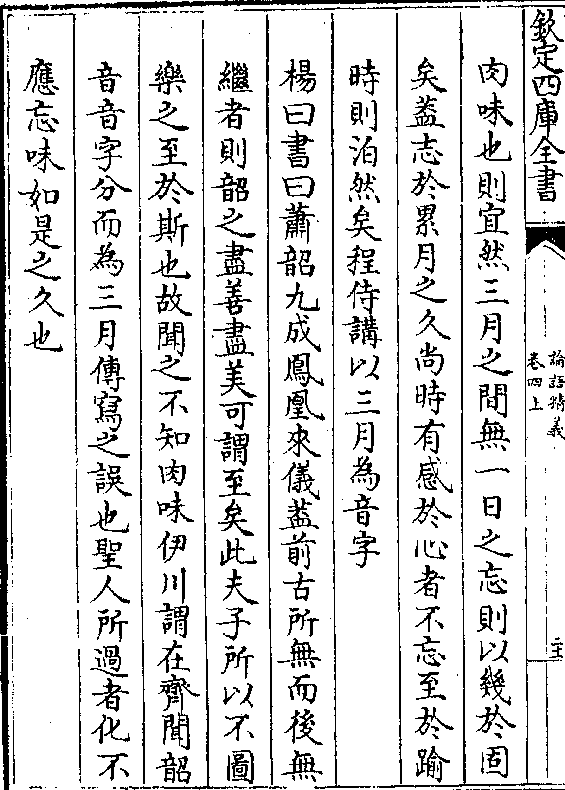 欽定四庫全書
論語精義
卷四上
肉味也則宜然三月之間無一日之忘則以幾於固
矣葢志於累月之久尚時有感於心者不忘至於踰
時則泊然矣程侍講以三月為音字
楊曰書曰蕭韶九成鳳凰來儀葢前古所無而後無
繼者則韶之盡善盡美可謂至矣此夫子所以不圖
樂之至於斯也故聞之不知肉味伊川謂在齊聞韶
音音字分而為三月傳寫之誤也聖人所過者化不
應忘味如是之久也